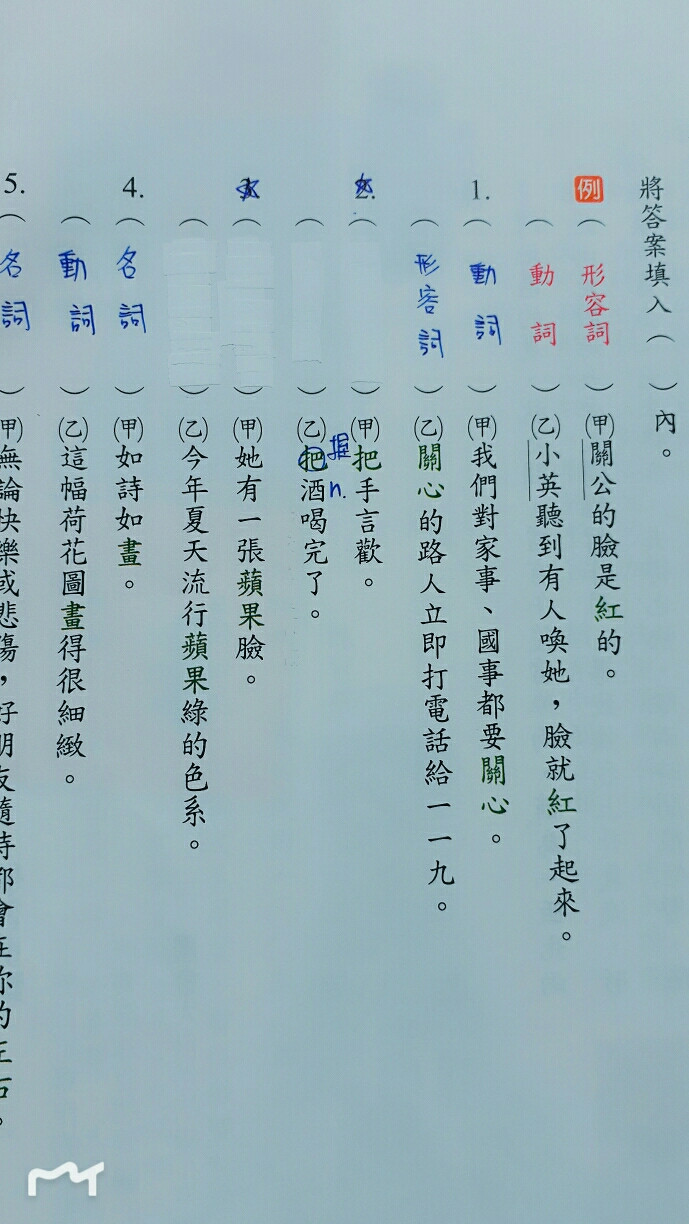 將答案填入（　）內。
例（形容詞）（甲）關公的臉是紅的。
（動詞）（乙）小英聽到有人喚她，臉就紅了起來。
1.（動詞）（甲）我們對家事、國事都要關心。
（形容詞）（乙）關心的路人立即打電話給一一九。
2.（　）（甲）把手言歡。
握
n.
（　）（乙）把酒喝完了。
（　）（甲）她有一張蘋果臉。
（　）（乙）今年夏天流行蘋果綠的色系。
4.（名詞）（甲）如詩如畫。
（動詞）（乙）這幅荷花圖畫得很細緻。
5.（名詞）（甲）無論快樂或悲傷，好朋友隨時都會在你的左右。